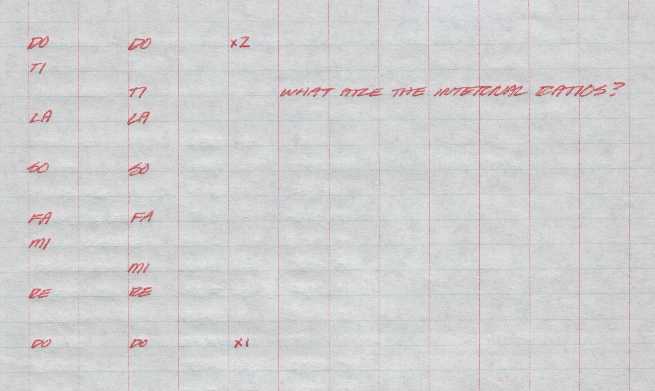 DO DO x2
TI
TI WHAT ARE THE INTERNAL RATIOS?
LA LA
SO SO
FA FA
MI
MI
RE RE
DO DO x1